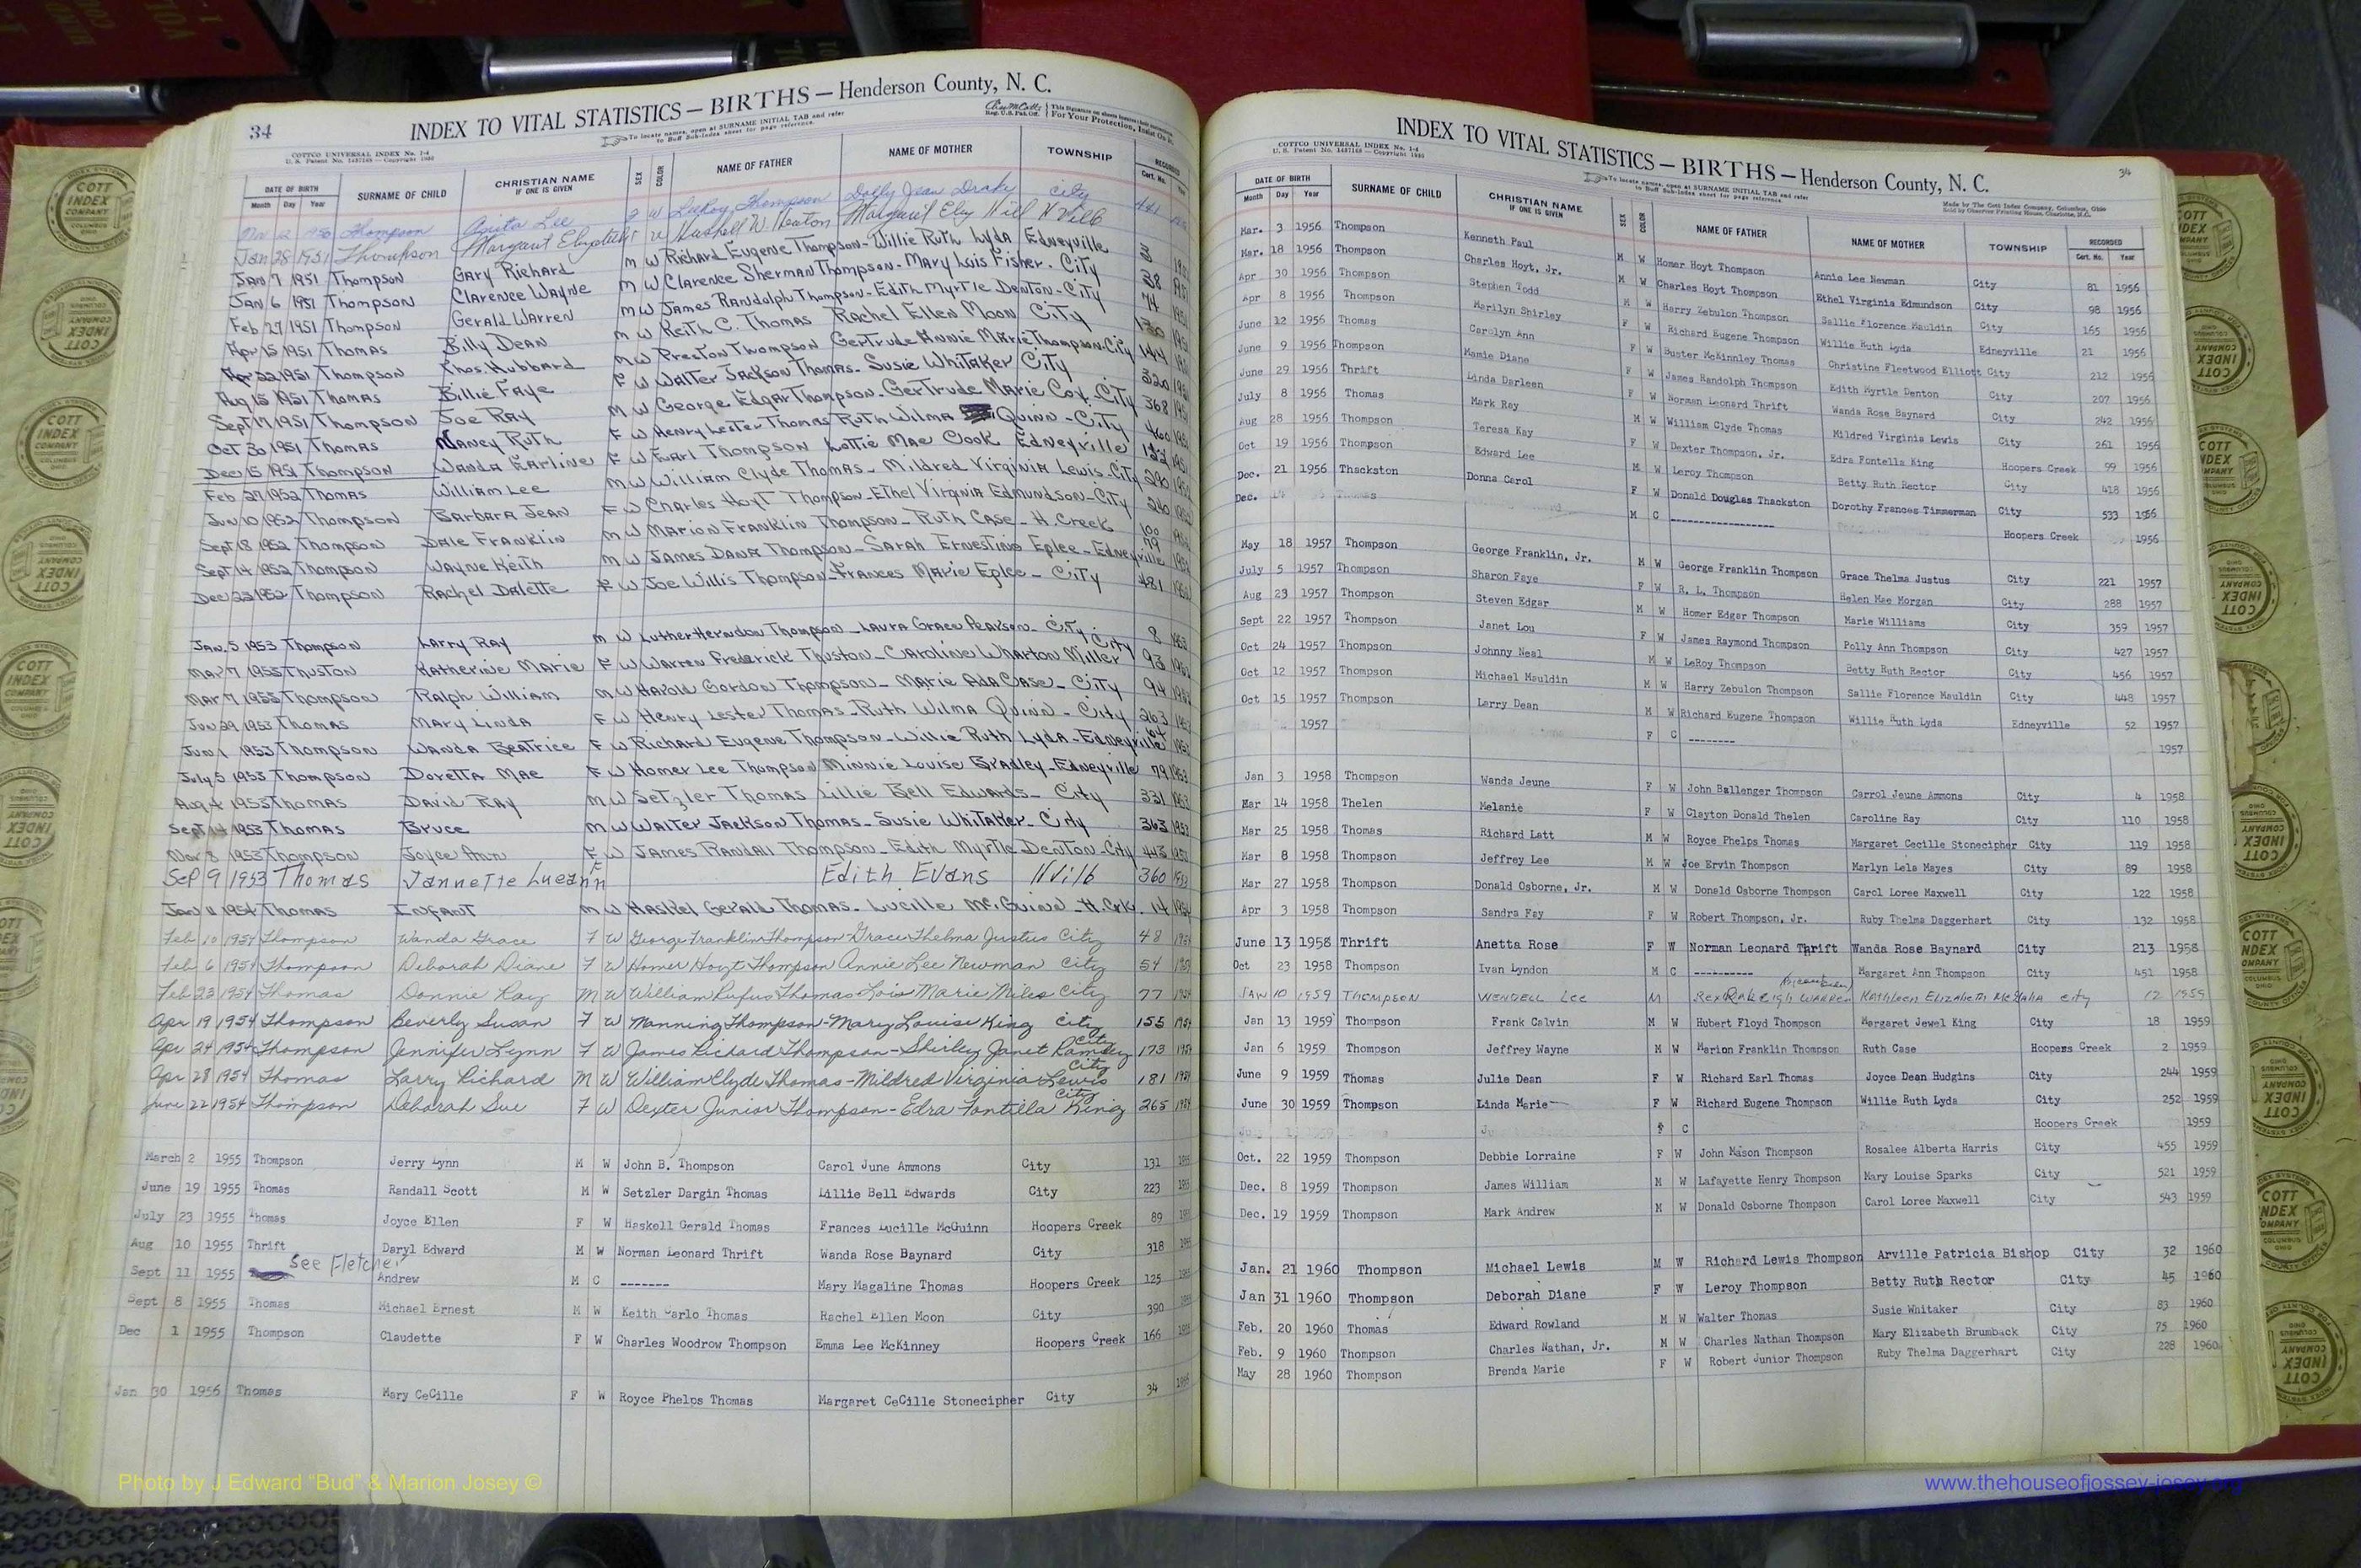 34
INDEX TO VITAL STATISTICS — BIRTHS — Henderson County, N. C.
COTTCO UNIVERSAL INDEX No. 1-4
U. S. Patent No. 1437148 — Copyright 1930
To locate names, open at SURNAME INITIAL TAB and refer
to Buff Sub-Index sheet for page reference.
DATE OF BIRTH SURNAME OF CHILD CHRISTIAN NAME IF ONE IS GIVEN SEX COLOR NAME OF FATHER NAME OF MOTHER TOWNSHIP RECORDED
Month Day Year Cert. No. Year
1950 Thompson Anita Lee F W LeeRoy Thompson Dolly Jean Drake City 441
Jan 28 1951 Thompson Margaret Elizabeth W. Heaton Margaret Hill
Jan 7 1951 Thompson Gary Richard M W Richard Eugene Thompson - Willie Ruth Lyda Edneyville 3
Jan 6 1951 Thompson Clarence Wayne M W Clarence Sherman Thompson - Mary Lois Fisher. City 38
Feb 27 1951 Thompson Gerald Warren M W James Randolph Thompson - Edith Myrtle Denton - City 74
Apr 15 1951 Thomas Billy Dean M W Keith C. Thomas Rachel Ellen Moon City
Apr 22 1951 Thompson Thos. Hubbard M W Preston Thompson Gertrude Annie Marie Thompson - City 144
Aug 15 1951 Thomas Billie Faye F W Walter Jackson Thomas - Susie Whitaker City 320
Sept 17 1951 Thompson Joe Ray M W George Edgar Thompson - Gertrude Marie Cox - City 368
Oct 30 1951 Thomas Nancy Ruth F W Henry Lester Thomas Ruth Wilma Quinn - City 460
Dec 15 1951 Thompson Wanda Earline F W Earl Thompson Lottie Mae Cook Edneyville
Feb 27 1952 Thomas William Lee M W William Clyde Thomas - Mildred Virginia Lewis - City 290
Jun 10 1952 Thompson Barbara Jean F W Charles Hoyt Thompson - Ethel Virginia Edmundson - City 240
Sept 18 1952 Thompson Dale Franklin M W Marion Franklin Thompson - Ruth Case - H. Creek 100
Sept 14 1952 Thompson Wayne Keith M W James Dana Thompson - Sarah Ernestine Eplee - Edneyville 79
Dec 23 1952 Thompson Rachel Dalette F W Joe Willis Thompson - Frances Marie Eplee - City 481
Jan. 5 1953 Thompson Larry Ray M W Luther Herndon Thompson - Laura Grace Pearson - City 8 1953
Mar 7 1953 Thuston Katherine Marie F W Warren Frederick Thuston - Caroline Wharton Miller City 93
Mar 7 1953 Thompson Ralph William M W Harold Gordon Thompson - Marie Ada Case - City 94
Jun 29 1953 Thomas Mary Linda F W Henry Lester Thomas - Ruth Wilma Quinn - City 263
Jun 1 1953 Thompson Wanda Beatrice F W Richard Eugene Thompson - Willie Ruth Lyda - Edneyville
July 5 1953 Thompson Doretta Mae F W Homer Lee Thompson Minnie Louise Bradley - Edneyville 79 1953
Aug 4 1953 Thomas David Ray M W Setzler Thomas Lillie Bell Edwards - City 331 1953
Sept 14 1953 Thomas Bruce M W Walter Jackson Thomas - Susie Whitaker - City 363 1953
Nov 8 1953 Thompson Joyce Ann F W James Randall Thompson - Edith Myrtle Denton - City 443 1953
Sep 9 1953 Thomas Jannette Lueann Edith Evans 360 1953
Jan 11 1954 Thomas Infant M W Haskel Gerald Thomas - Lucille McGuinn - H. Crk. 14 1954
Feb 10 1954 Thompson Wanda Grace F W George Franklin Thompson - Grace Thelma Justus City 48 1954
Feb 6 1954 Thompson Deborah Diane F W Homer Hoyt Thompson Annie Lee Newman City 54 1954
Feb 23 1954 Thomas Donnie Ray M W William Rufus Thomas - Lois Marie Niles City 77 1954
Apr 19 1954 Thompson Beverly Susan F W Manning Thompson - Mary Louise King City 155 1954
Apr 24 1954 Thompson Jennifer Lynn F W James Richard Thompson - Shirley Janet Ramsey City 173 1954
Apr 28 1954 Thomas Larry Richard M W William Clyde Thomas - Mildred Virginia Lewis City 181 1954
June 22 1954 Thompson Deborah Sue F W Dexter Junior Thompson - Edra Fontella King City 265 1954
March 2 1955 Thompson Jerry Lynn M W John B. Thompson Carol June Ammons City 131 1955
June 19 1955 Thomas Randall Scott M W Setzler Dargin Thomas Lillie Bell Edwards City 223 1955
July 23 1955 Thomas Joyce Ellen F W Haskell Gerald Thomas Frances Lucille McGuinn Hoopers Creek 89 1955
Aug 10 1955 Thrift Daryl Edward M W Norman Leonard Thrift Wanda Rose Baynard City 318 1955
See Fletcher
Sept 11 1955 Andrew M C ------- Mary Magaline Thomas Hoopers Creek 125 1955
Sept 8 1955 Thomas Michael Ernest M W Keith Carlo Thomas Rachel Ellen Moon City 390 1955
Dec 1 1955 Thompson Claudette F W Charles Woodrow Thompson Emma Lee McKinney Hoopers Creek 166 1955
Jan 30 1956 Thomas Mary CeCille F W Royce Phelps Thomas Margaret CeCille Stonecipher City 34 1956
Photo by J Edward "Bud" & Marion Josey ©
34
INDEX TO VITAL STATISTICS — BIRTHS — Henderson County, N. C.
COTTCO UNIVERSAL INDEX No. 1-4
U. S. Patent No. 1437148 — Copyright 1930
To locate names, open at SURNAME INITIAL TAB and refer
to Buff Sub-Index sheet for page reference.
Made by The Cott Index Company, Columbus, Ohio
Sold by Observer Printing House, Charlotte, N.C.
DATE OF BIRTH SURNAME OF CHILD CHRISTIAN NAME IF ONE IS GIVEN SEX COLOR NAME OF FATHER NAME OF MOTHER TOWNSHIP RECORDED
Month Day Year Cert. No. Year
Mar. 3 1956 Thompson Kenneth Paul M W Homer Hoyt Thompson Annie Lee Newman City 81 1956
Mar. 18 1956 Thompson Charles Hoyt, Jr. M W Charles Hoyt Thompson Ethel Virginia Edmundson City 98 1956
Apr 30 1956 Thompson Stephen Todd M W Harry Zebulon Thompson Sallie Florence Mauldin City 165 1956
Apr 8 1956 Thompson Marilyn Shirley F W Richard Eugene Thompson Willie Ruth Lyda Edneyville 21 1956
June 12 1956 Thomas Carolyn Ann F W Buster McKinnley Thomas Christine Fleetwood Elliott City 212 1956
June 9 1956 Thompson Mamie Diane F W James Randolph Thompson Edith Myrtle Denton City 207 1956
June 29 1956 Thrift Linda Darleen F W Norman Leonard Thrift Wanda Rose Baynard City 242 1956
July 8 1956 Thomas Mark Ray M W William Clyde Thomas Mildred Virginia Lewis City 261 1956
Aug 28 1956 Thompson Teresa Kay F W Dexter Thompson, Jr. Edra Fontella King Hoopers Creek 99 1956
Oct 19 1956 Thompson Edward Lee M W Leroy Thompson Betty Ruth Rector City 418 1956
Dec. 21 1956 Thackston Donna Carol F W Donald Douglas Thackston Dorothy Frances Timmerman City 533 1956
Dec. M C ------------------ Hoopers Creek 1956
May 18 1957 Thompson George Franklin, Jr. M W George Franklin Thompson Grace Thelma Justus City 221 1957
July 5 1957 Thompson Sharon Faye F W R. L. Thompson Helen Mae Morgan City 288 1957
Aug 23 1957 Thompson Steven Edgar M W Homer Edgar Thompson Marie Williams City 359 1957
Sept 22 1957 Thompson Janet Lou F W James Raymond Thompson Polly Ann Thompson City 427 1957
Oct 24 1957 Thompson Johnny Neal M W LeRoy Thompson Betty Ruth Rector City 456 1957
Oct 12 1957 Thompson Michael Mauldin M W Harry Zebulon Thompson Sallie Florence Mauldin City 448 1957
Oct 15 1957 Thompson Larry Dean M W Richard Eugene Thompson Willie Ruth Lyda Edneyville 52 1957
1957 F C -------- 1957
Jan 3 1958 Thompson Wanda Jeune F W John Ballenger Thompson Carrol Jeune Ammons City 4 1958
Mar 14 1958 Thelen Melanie F W Clayton Donald Thelen Caroline Ray City 110 1958
Mar 25 1958 Thomas Richard Latt M W Royce Phelps Thomas Margaret Cecille Stonecipher City 119 1958
Mar 8 1958 Thompson Jeffrey Lee M W Joe Ervin Thompson Marlyn Lela Mayes City 89 1958
Mar 27 1958 Thompson Donald Osborne, Jr. M W Donald Osborne Thompson Carol Loree Maxwell City 122 1958
Apr 3 1958 Thompson Sandra Fay F W Robert Thompson, Jr. Ruby Thelma Daggerhart City 132 1958
June 13 1958 Thrift Anetta Rose F W Norman Leonard Thrift Wanda Rose Baynard City 213 1958
Oct 23 1958 Thompson Ivan Lyndon M C ---------- Margaret Ann Thompson City 451 1958
Jan 10 1959 Thompson Wendell Lee M Rex Raleigh Warren Kathleen Elizabeth McMaha City 12 1959
Jan 13 1959 Thompson Frank Calvin M W Hubert Floyd Thompson Margaret Jewel King City 18 1959
Jan 6 1959 Thompson Jeffrey Wayne M W Marion Franklin Thompson Ruth Case Hoopers Creek 2 1959
June 9 1959 Thomas Julie Dean F W Richard Earl Thomas Joyce Dean Hudgins City 244 1959
June 30 1959 Thompson Linda Marie F W Richard Eugene Thompson Willie Ruth Lyda City 252 1959
1959 F C Hoopers Creek 1959
Oct. 22 1959 Thompson Debbie Lorraine F W John Mason Thompson Rosalee Alberta Harris City 455 1959
Dec. 8 1959 Thompson James William M W Lafayette Henry Thompson Mary Louise Sparks City 521 1959
Dec. 19 1959 Thompson Mark Andrew M W Donald Osborne Thompson Carol Loree Maxwell City 543 1959
Jan. 21 1960 Thompson Michael Lewis M W Richard Lewis Thompson Arville Patricia Bishop City 32 1960
Jan 31 1960 Thompson Deborah Diane F W Leroy Thompson Betty Ruth Rector City 45 1960
Feb. 20 1960 Thomas Edward Rowland M W Walter Thomas Susie Whitaker City 83 1960
Feb. 9 1960 Thompson Charles Nathan, Jr. M W Charles Nathan Thompson Mary Elizabeth Brumback City 75 1960
May 28 1960 Thompson Brenda Marie F W Robert Junior Thompson Ruby Thelma Daggerhart City 228 1960
www.thehouseofjossey-josey.org